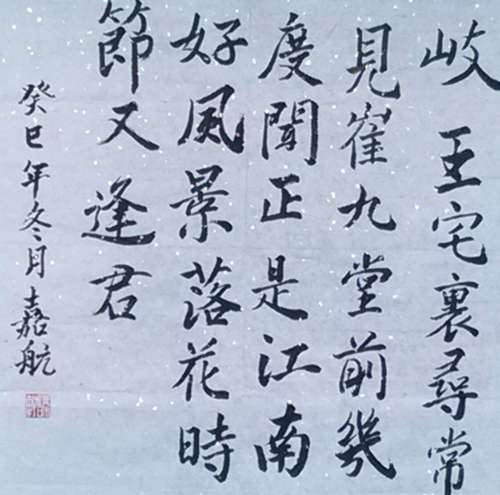 岐王宅裏尋常
見崔九堂前幾
度聞正是江南
好風景落花時
節又逢君
癸巳年冬月嘉航